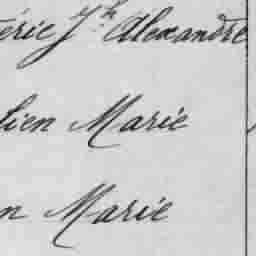 éric Jh Alexandre
lien Marie
n Marie